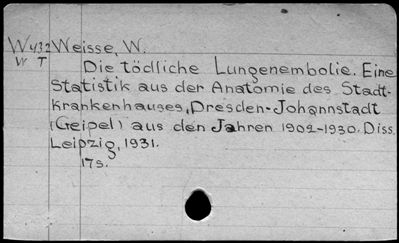 W432 Weisse, W.
W T Die tödliche Lungenembolie. Eine
Statistik aus der Anatomie des Stadt-
krankenhauses, Dresden-Johannstadt
(Geipel) aus den Jahren 1902-1930. Diss.
Leipzig, 1931.
17s.